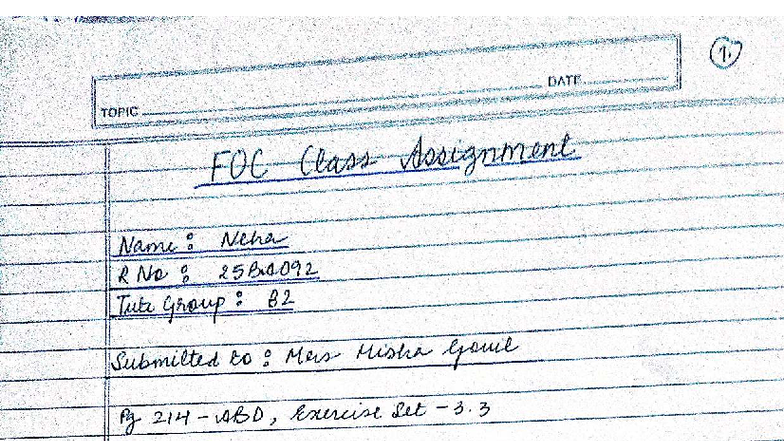 1.
TOPIC
DATE
FOC Class Assignment
Name : Neha
R No : 25BA092
Tute Group : B2
Submitted to : Mrs Misha
Pg 214 - ABD, Exercise Set - 3.3